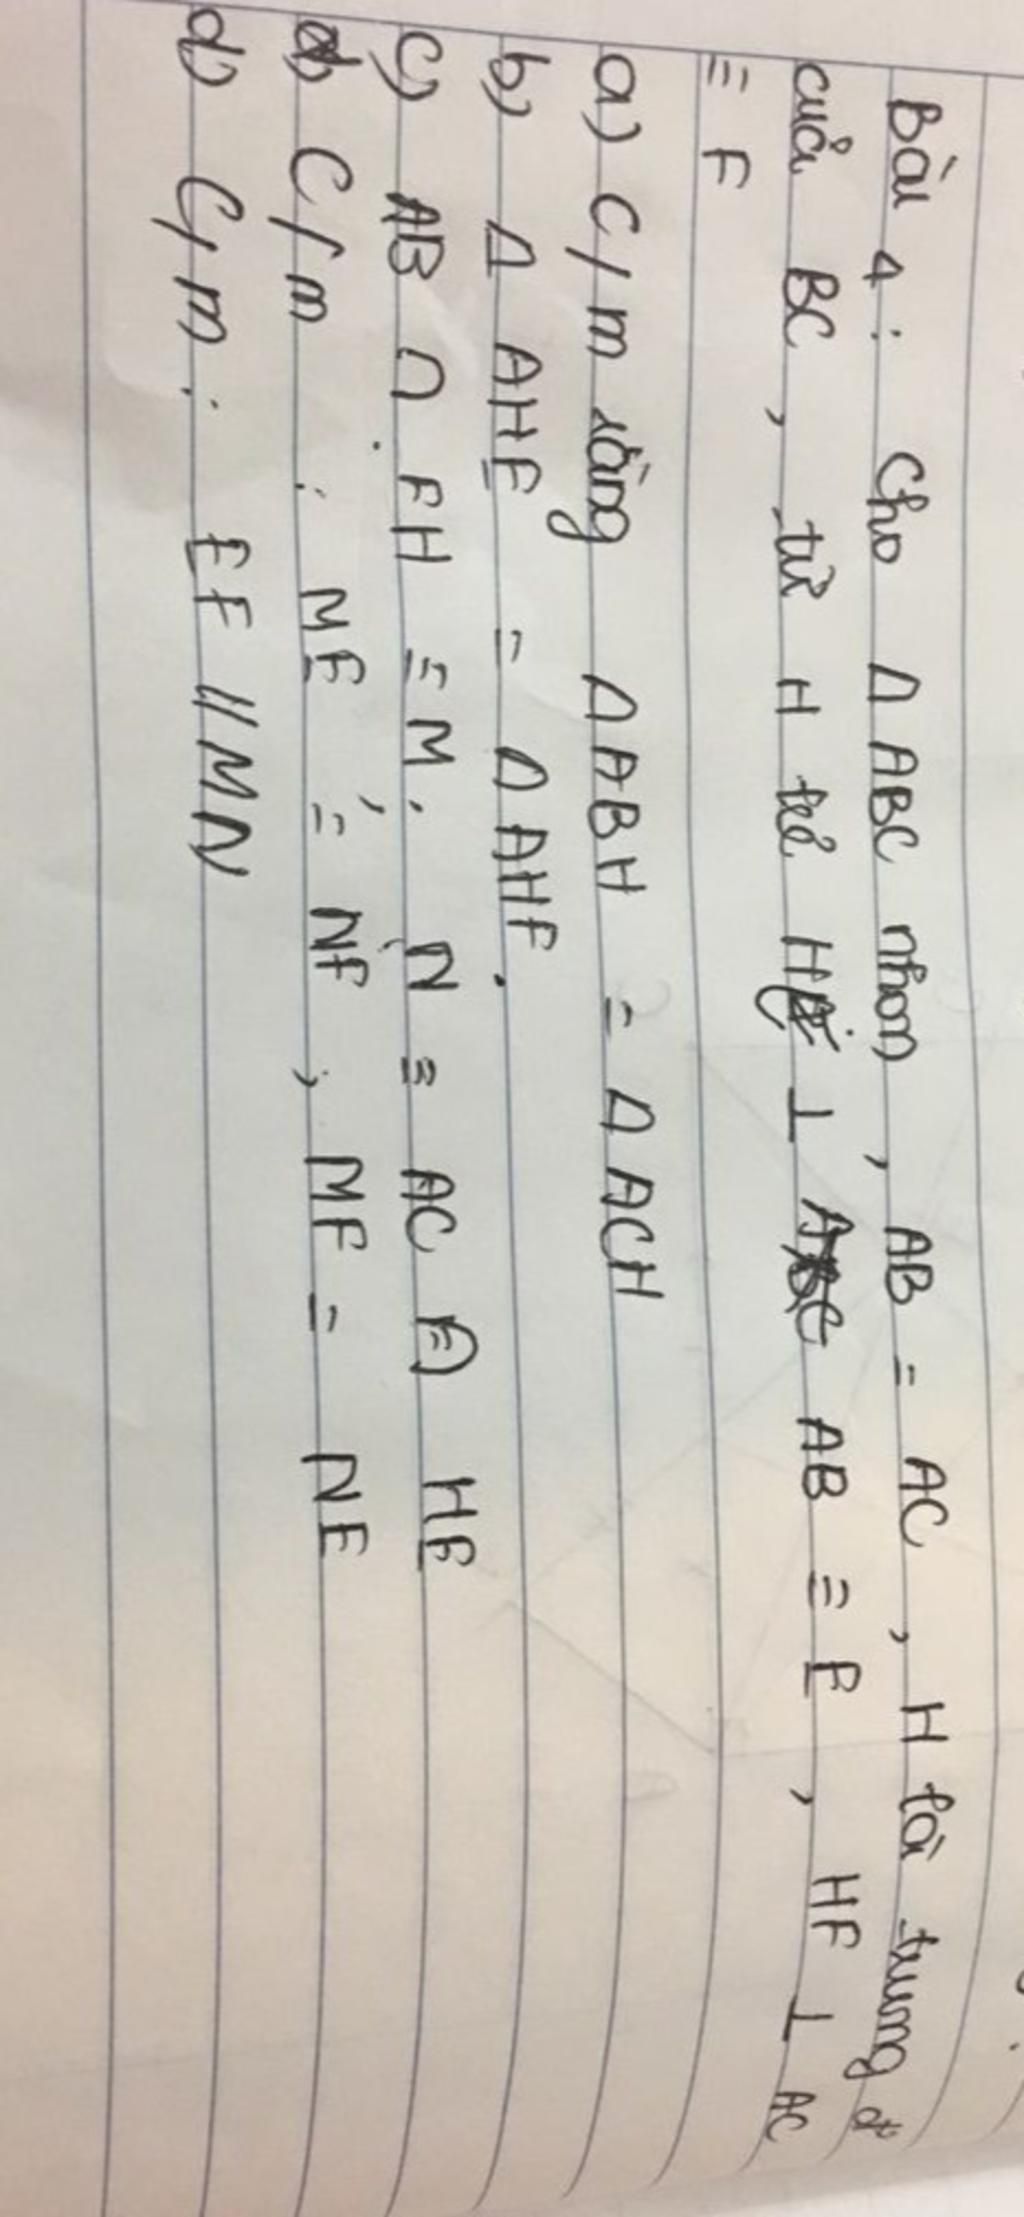 Bài 4 : Cho Δ ABC nhọn , AB = AC , H là trung đ
của BC , từ H kẻ HE ⊥ AB ≡ E , HF ⊥ AC
≡ F
a) C/m rằng Δ ABH = Δ ACH
b) Δ AHE = Δ AHF .
c) AB ∩ FH ≡ M ; N ≡ AC ∩ HE
C/m : ME = NF , MF = NE
d) C/m : EF // MN